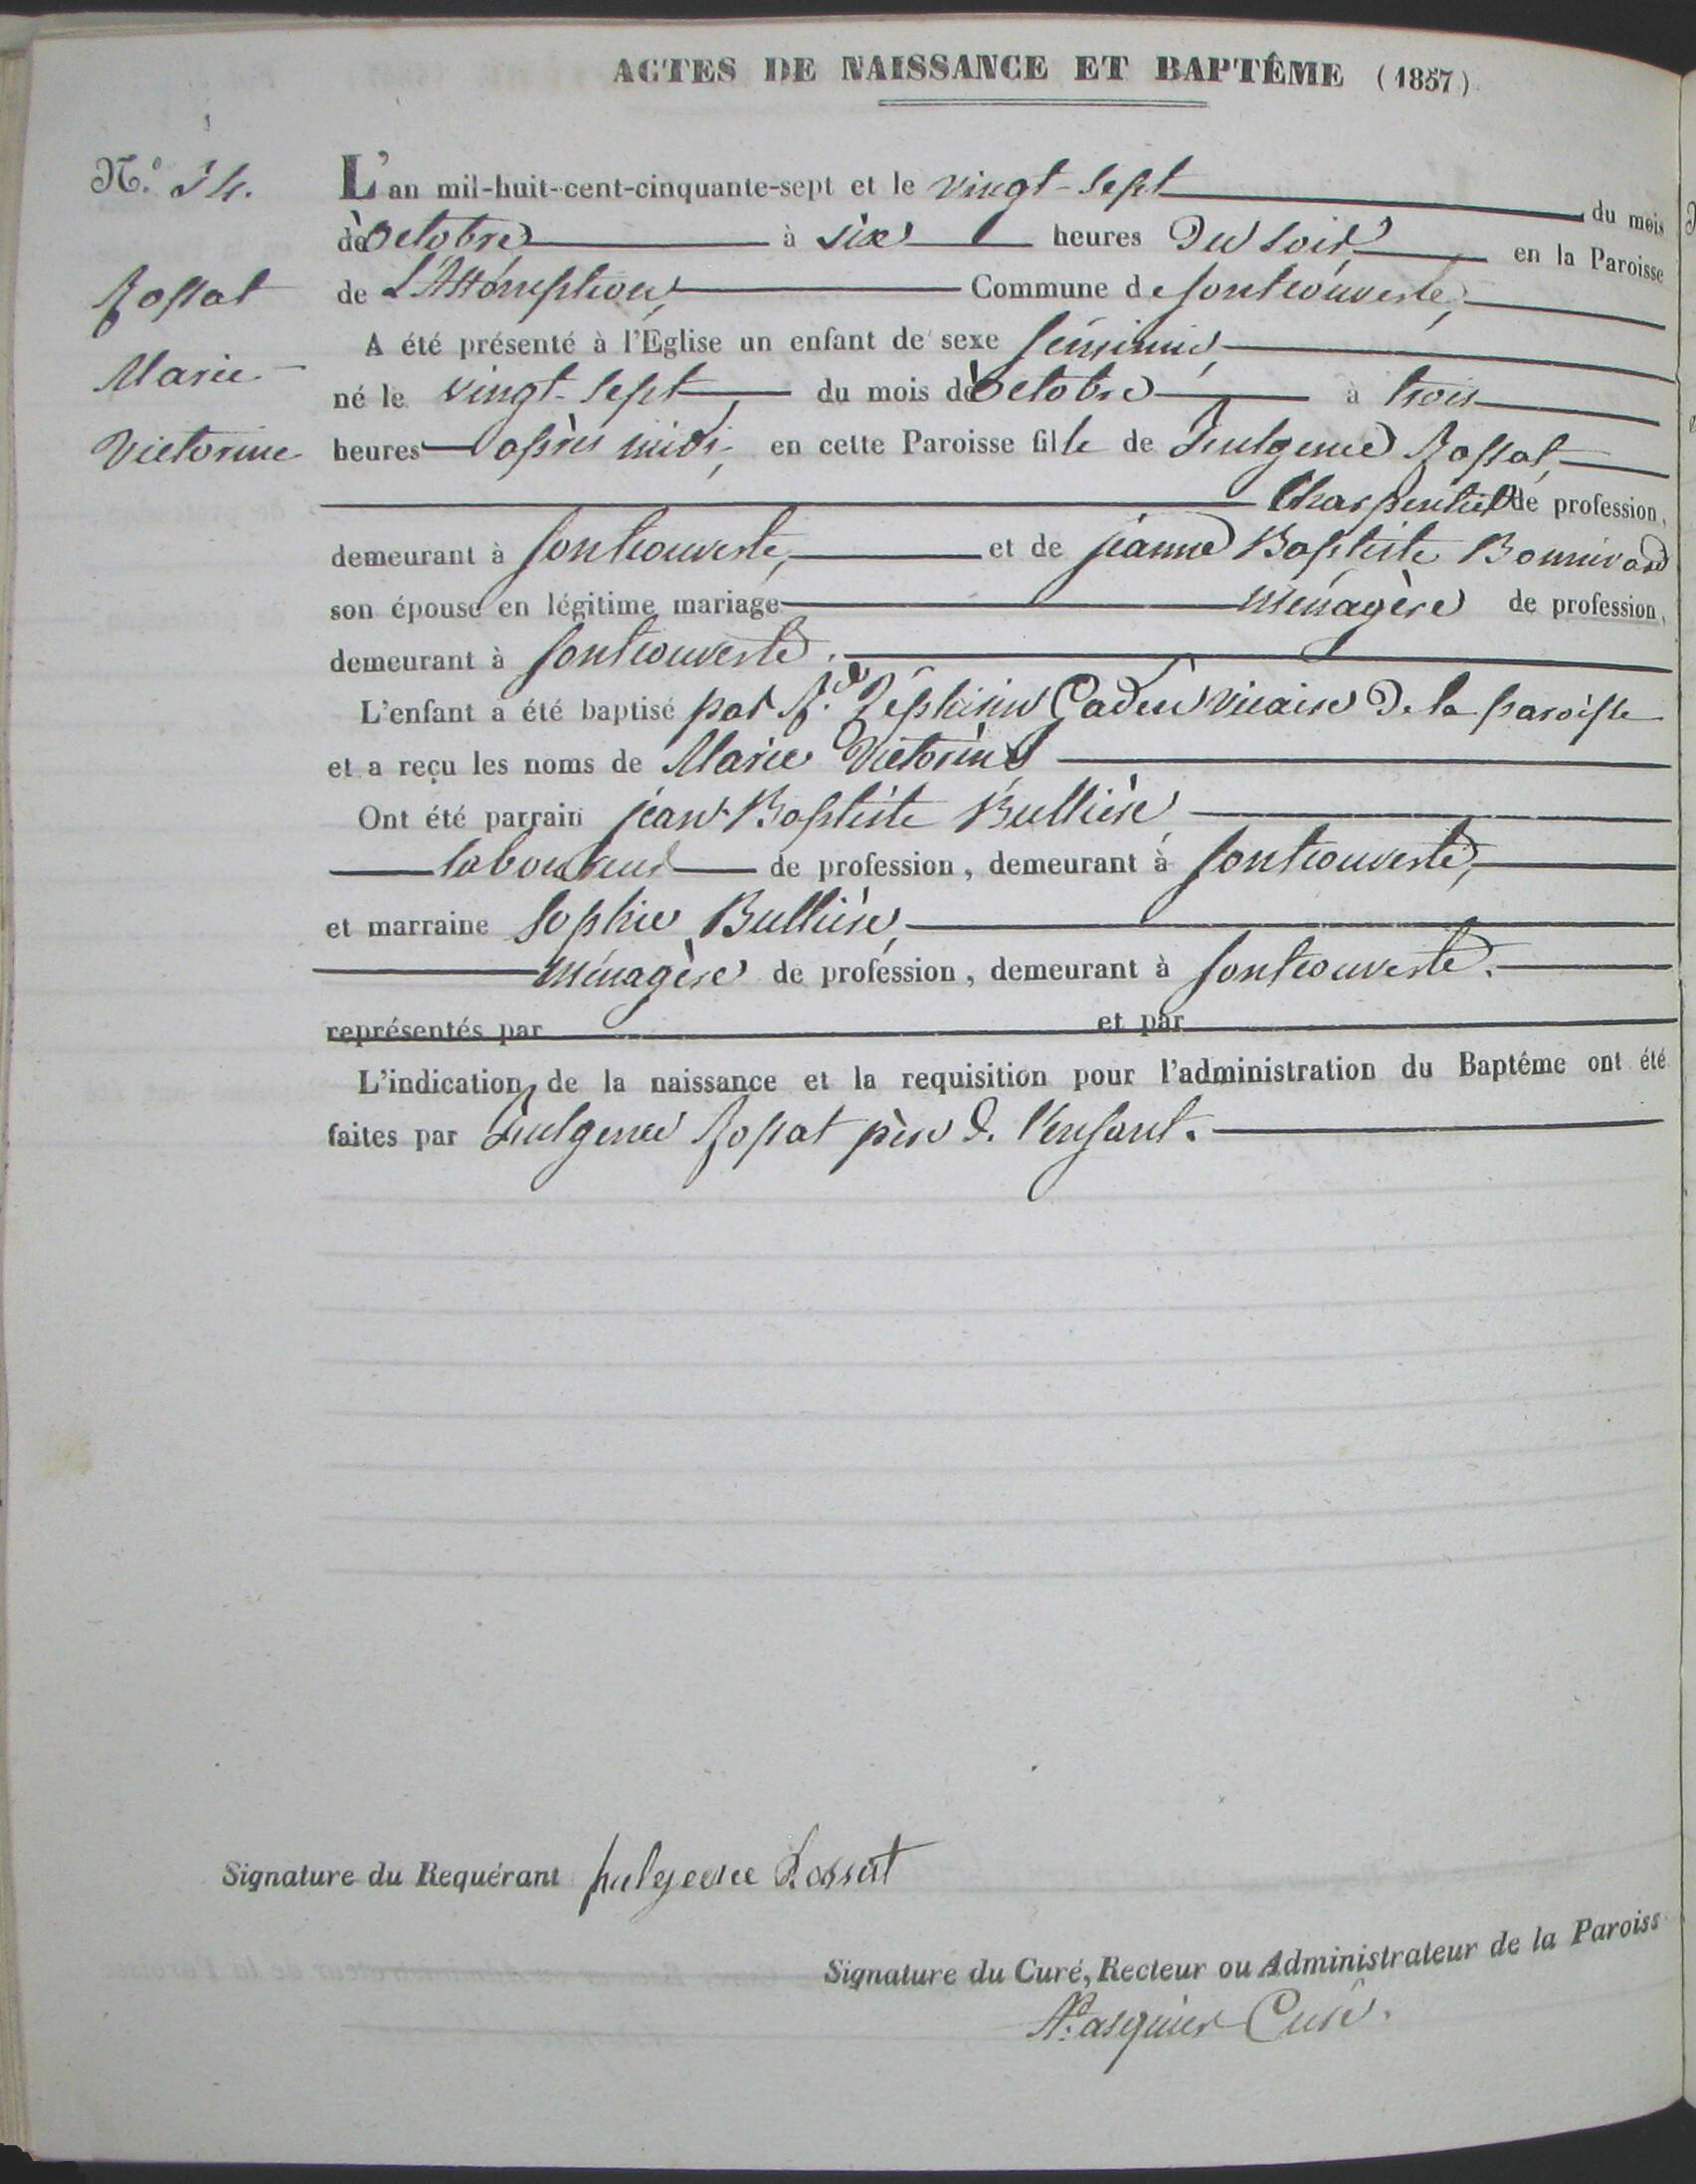 ACTES DE NAISSANCE ET BAPTÊME (1857)
N.° 34.
L'an mil-huit-cent-cinquante-sept et le vingt-sept du mois
d'octobre à six heures du soir en la Paroisse
Rossat
de L'Assomption, Commune de fontcouverte,
A été présenté à l'Eglise un enfant de sexe féminin,
Marie
né le vingt-sept du mois d'octobre à trois
Victorine
heures après midi, en cette Paroisse fille de fulgence Rossat,
Charpentier de profession,
demeurant à fontcouverte, et de jeanne Baptiste Bonnivard
son épouse en légitime mariage ménagère de profession,
demeurant à fontcouverte.
L'enfant a été baptisé par R.d Zéphirin vicaire de la paroisse
et a reçu les noms de Marie Victorine
Ont été parrain jean-Baptiste Bullière
laboureur de profession, demeurant à fontcouverte,
et marraine Sophie Bullière,
ménagère de profession, demeurant à fontcouverte.
représentés par et par
L'indication de la naissance et la requisition pour l'administration du Baptême ont été
faites par fulgence Rossat père de l'enfant.
Signature du Requérant fulgence Rossat
Signature du Curé, Recteur ou Administrateur de la Paroiss
Pasquier Curé.